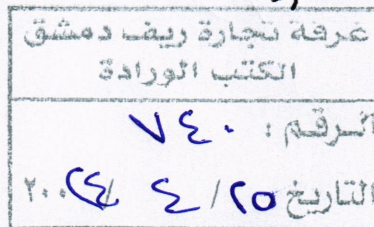 غرفة تجارة ريف دمشق
الكتب الورادة
الرقم : ٧٤٠
التاريخ ٢٥ / ٤ / ٢٠٠٢٤